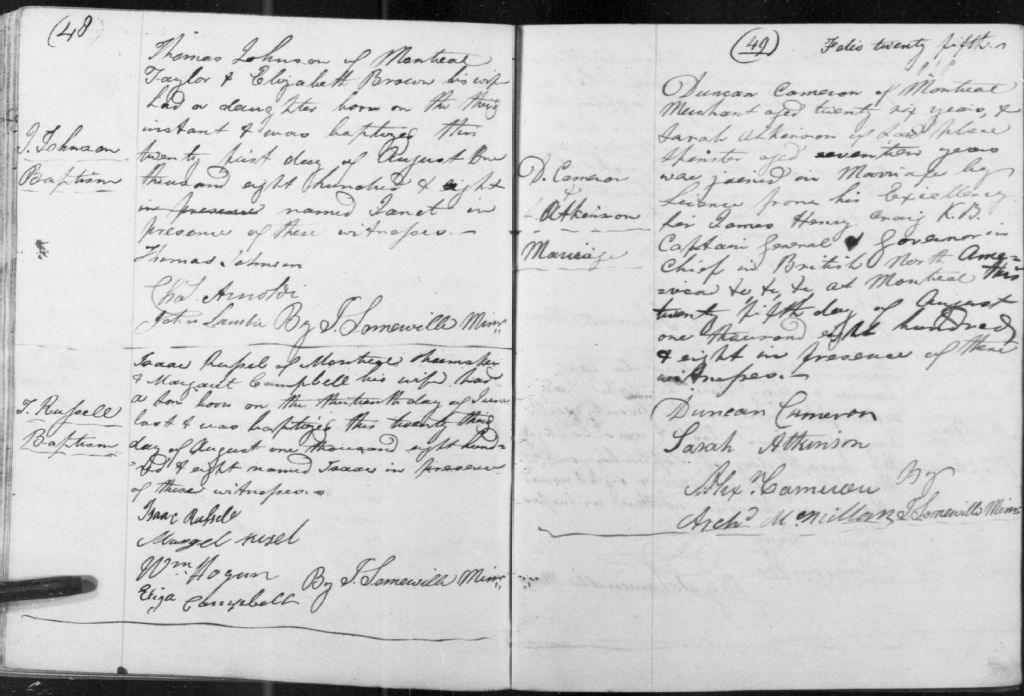 (48
Thomas Johnson of Montreal
Taylor & Elizabeth Brown his wife
had a daughter born on the third
instant & was baptized this
twenty first day of August One
thousand eight hundred & eight
in presence named Janet in
presence of these witnesses.
J. Johnson
Baptism
Thomas Johnson
Chas Arnoldi
John Lambie By J. Somerville Minr
Isaac Russel of Montreal Shoemaker
& Margaret Campbell his wife had
a son born on the thirteenth day of June
last & was baptized this twenty third
day of August one thousand eight hund-
-red & eight named Isaac in presence
of these witnesses.
I. Russell
Baptism
Isaac Russell
Marget rusel
Wm Hogun
Eliza Campbell By J. Somerville Minr
(49) Folio twenty fifth
Duncan Cameron of Montreal
Merchant aged twenty six years, &
Sarah Atkinson of said place
Spinster aged seventeen years
was joined in Marriage by
Licence from his Excellency
Sir James Henry Craig K.B.
Captain General & Governor in
Chief in British North Ame-
-rica &c &c &c at Montreal this
twenty fifth day of August
one thousand eight hundred
& eight in presence of these
witnesses.
D. Cameron
&
S. Atkinson
Marriage
Duncan Cameron
Sarah Atkinson
Alexr Cameron By
Archd McMillan J. Somerville Minr